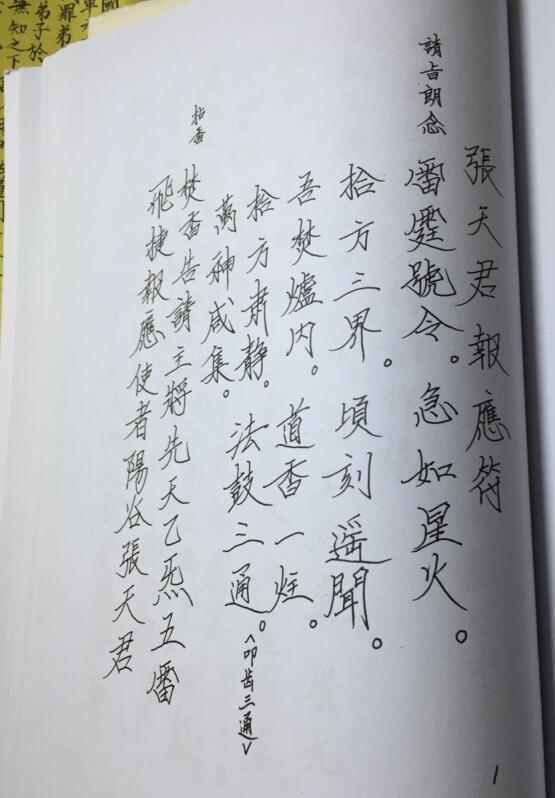 張天君報應符
請旨朗念
雷霆號令。急如星火。
拾方三界。頃刻遥聞。
吾焚爐内。道香一炷。
拾方肅静。法鼓三通。<叩齿三通>
萬神咸集。
拈香
焚香告請主將先天乙炁五雷
飛捷報應使者陽谷張天君
1
罪弟
弟子於
無知之下